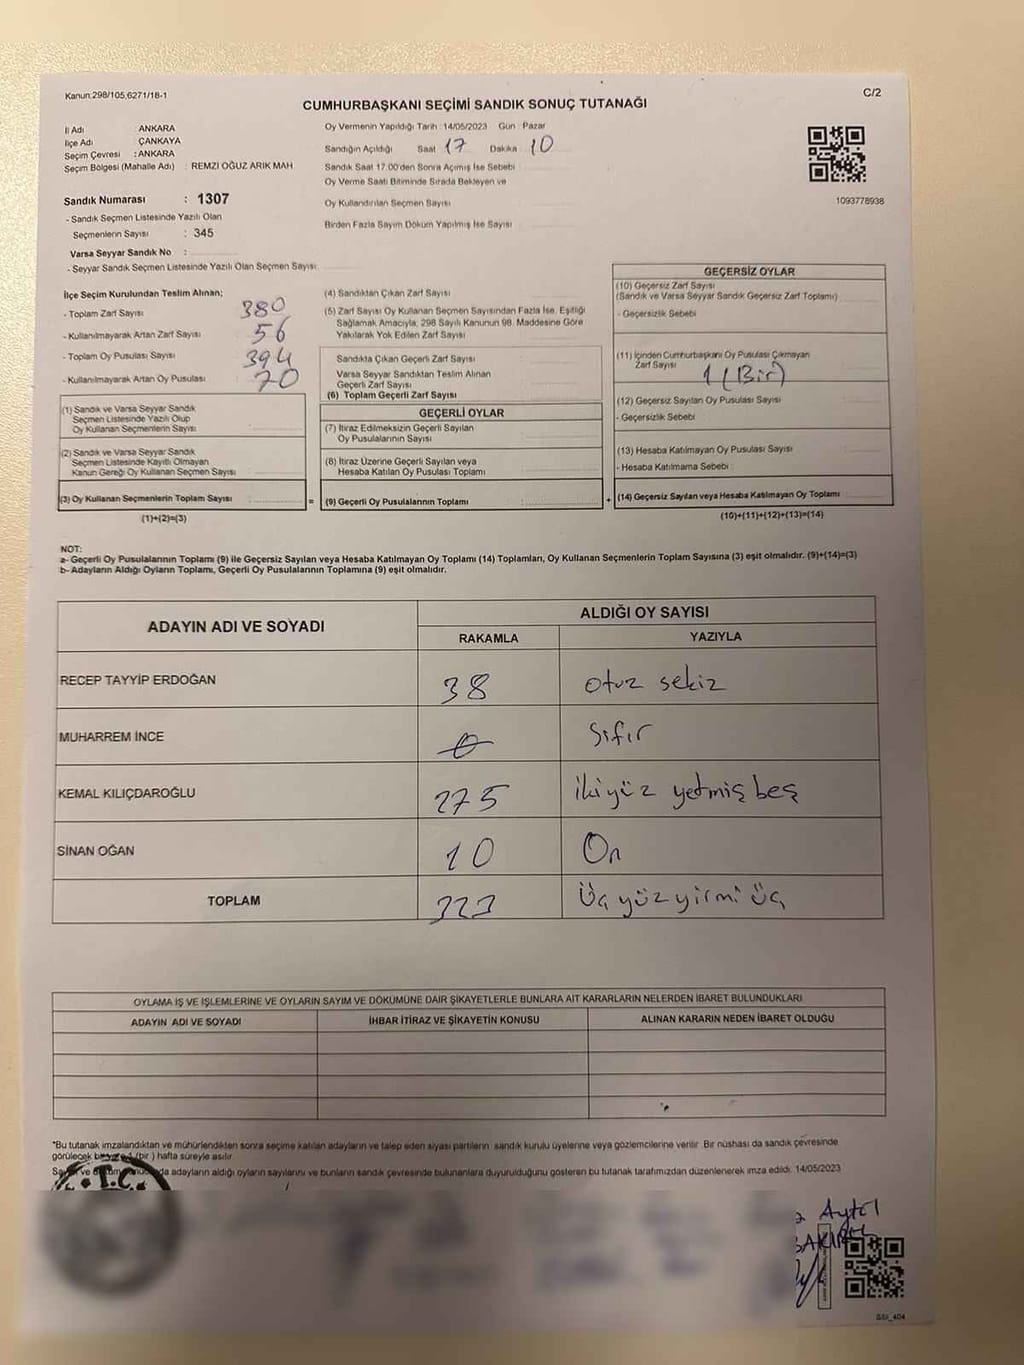 Kanun:298/105,6271/18-1
C/2
CUMHURBAŞKANI SEÇİMİ SANDIK SONUÇ TUTANAĞI
İl Adı ANKARA
İlçe Adı ÇANKAYA
Seçim Çevresi : ANKARA
Seçim Bölgesi (Mahalle Adı) : REMZİ OĞUZ ARIK MAH
Oy Vermenin Yapıldığı Tarih : 14/05/2023 Gün : Pazar
Sandığın Açıldığı Saat 17 Dakika 10
Sandık Saat 17.00'den Sonra Açımış İse Sebebi
Oy Verme Saati Bitiminde Sırada Bekleyen ve
Oy Kullandırılan Seçmen Sayısı
Birden Fazla Sayım Döküm Yapılmış İse Sayısı
1093778938
Sandık Numarası : 1307
- Sandık Seçmen Listesinde Yazılı Olan
Seçmenlerin Sayısı : 345
Varsa Seyyar Sandık No :
- Seyyar Sandık Seçmen Listesinde Yazılı Olan Seçmen Sayısı:
İlçe Seçim Kurulundan Teslim Alınan;
- Toplam Zarf Sayısı 380
- Kullanılmayarak Artan Zarf Sayısı 56
- Toplam Oy Pusulası Sayısı 394
- Kullanılmayarak Artan Oy Pusulası 70
(1) Sandık ve Varsa Seyyar Sandık
Seçmen Listesinde Yazılı Olup
Oy Kullanan Seçmenlerin Sayısı
(2) Sandık ve Varsa Seyyar Sandık
Seçmen Listesinde Kayıtlı Olmayan
Kanun Gereği Oy Kullanan Seçmen Sayısı
(3) Oy Kullanan Seçmenlerin Toplam Sayısı
(1)+(2)=(3)
(4) Sandıktan Çıkan Zarf Sayısı
(5) Zarf Sayısı Oy Kullanan Seçmen Sayısından Fazla İse, Eşitliği
Sağlamak Amacıyla; 298 Sayılı Kanunun 98. Maddesine Göre
Yakılarak Yok Edilen Zarf Sayısı
Sandıkta Çıkan Geçerli Zarf Sayısı
Varsa Seyyar Sandıktan Teslim Alınan
Geçerli Zarf Sayısı
(6) Toplam Geçerli Zarf Sayısı
GEÇERLİ OYLAR
(7) İtiraz Edilmeksizin Geçerli Sayılan
Oy Pusulalarının Sayısı
(8) İtiraz Üzerine Geçerli Sayılan veya
Hesaba Katılan Oy Pusulası Toplamı
= (9) Geçerli Oy Pusulalarının Toplamı
GEÇERSİZ OYLAR
(10) Geçersiz Zarf Sayısı
(Sandık ve Varsa Seyyar Sandık Geçersiz Zarf Toplamı)
- Geçersizlik Sebebi
(11) İçinden Cumhurbaşkanı Oy Pusulası Çıkmayan
Zarf Sayısı 1 (Bir)
(12) Geçersiz Sayılan Oy Pusulası Sayısı
- Geçersizlik Sebebi
(13) Hesaba Katılmayan Oy Pusulası Sayısı
- Hesaba Katılmama Sebebi
+ (14) Geçersiz Sayılan veya Hesaba Katılmayan Oy Toplamı
(10)+(11)+(12)+(13)=(14)
NOT:
a- Geçerli Oy Pusulalarının Toplamı (9) ile Geçersiz Sayılan veya Hesaba Katılmayan Oy Toplamı (14) Toplamları, Oy Kullanan Seçmenlerin Toplam Sayısına (3) eşit olmalıdır. (9)+(14)=(3)
b- Adayların Aldığı Oyların Toplamı, Geçerli Oy Pusulalarının Toplamına (9) eşit olmalıdır.
ADAYIN ADI VE SOYADI
ALDIĞI OY SAYISI
RAKAMLA YAZIYLA
RECEP TAYYİP ERDOĞAN 38 otuz sekiz
MUHARREM İNCE 0 Sıfır
KEMAL KILIÇDAROĞLU 275 ikiyüz yetmiş beş
SİNAN OĞAN 10 On
TOPLAM 323 Üç yüz yirmi üç
OYLAMA İŞ VE İŞLEMLERİNE VE OYLARIN SAYIM VE DÖKÜMÜNE DAİR ŞİKAYETLERLE BUNLARA AİT KARARLARIN NELERDEN İBARET BULUNDUKLARI
ADAYIN ADI VE SOYADI İHBAR İTİRAZ VE ŞİKAYETİN KONUSU ALINAN KARARIN NEDEN İBARET OLDUĞU
"Bu tutanak imzalandıktan ve mühürlendikten sonra seçime katılan adayların ve talep eden siyasi partilerin sandık kurulu üyelerine veya gözlemcilerine verilir. Bir nüshası da sandık çevresinde
görülecek bir yere 1 (bir) hafta süreyle asılır.
adayların aldığı oyların sayılarını ve bunların sandık çevresinde bulunanlara duyurulduğunu gösteren bu tutanak tarafımızdan düzenlenerek imza edildi. 14/05/2023
T.C.
Aytül
SSI_404